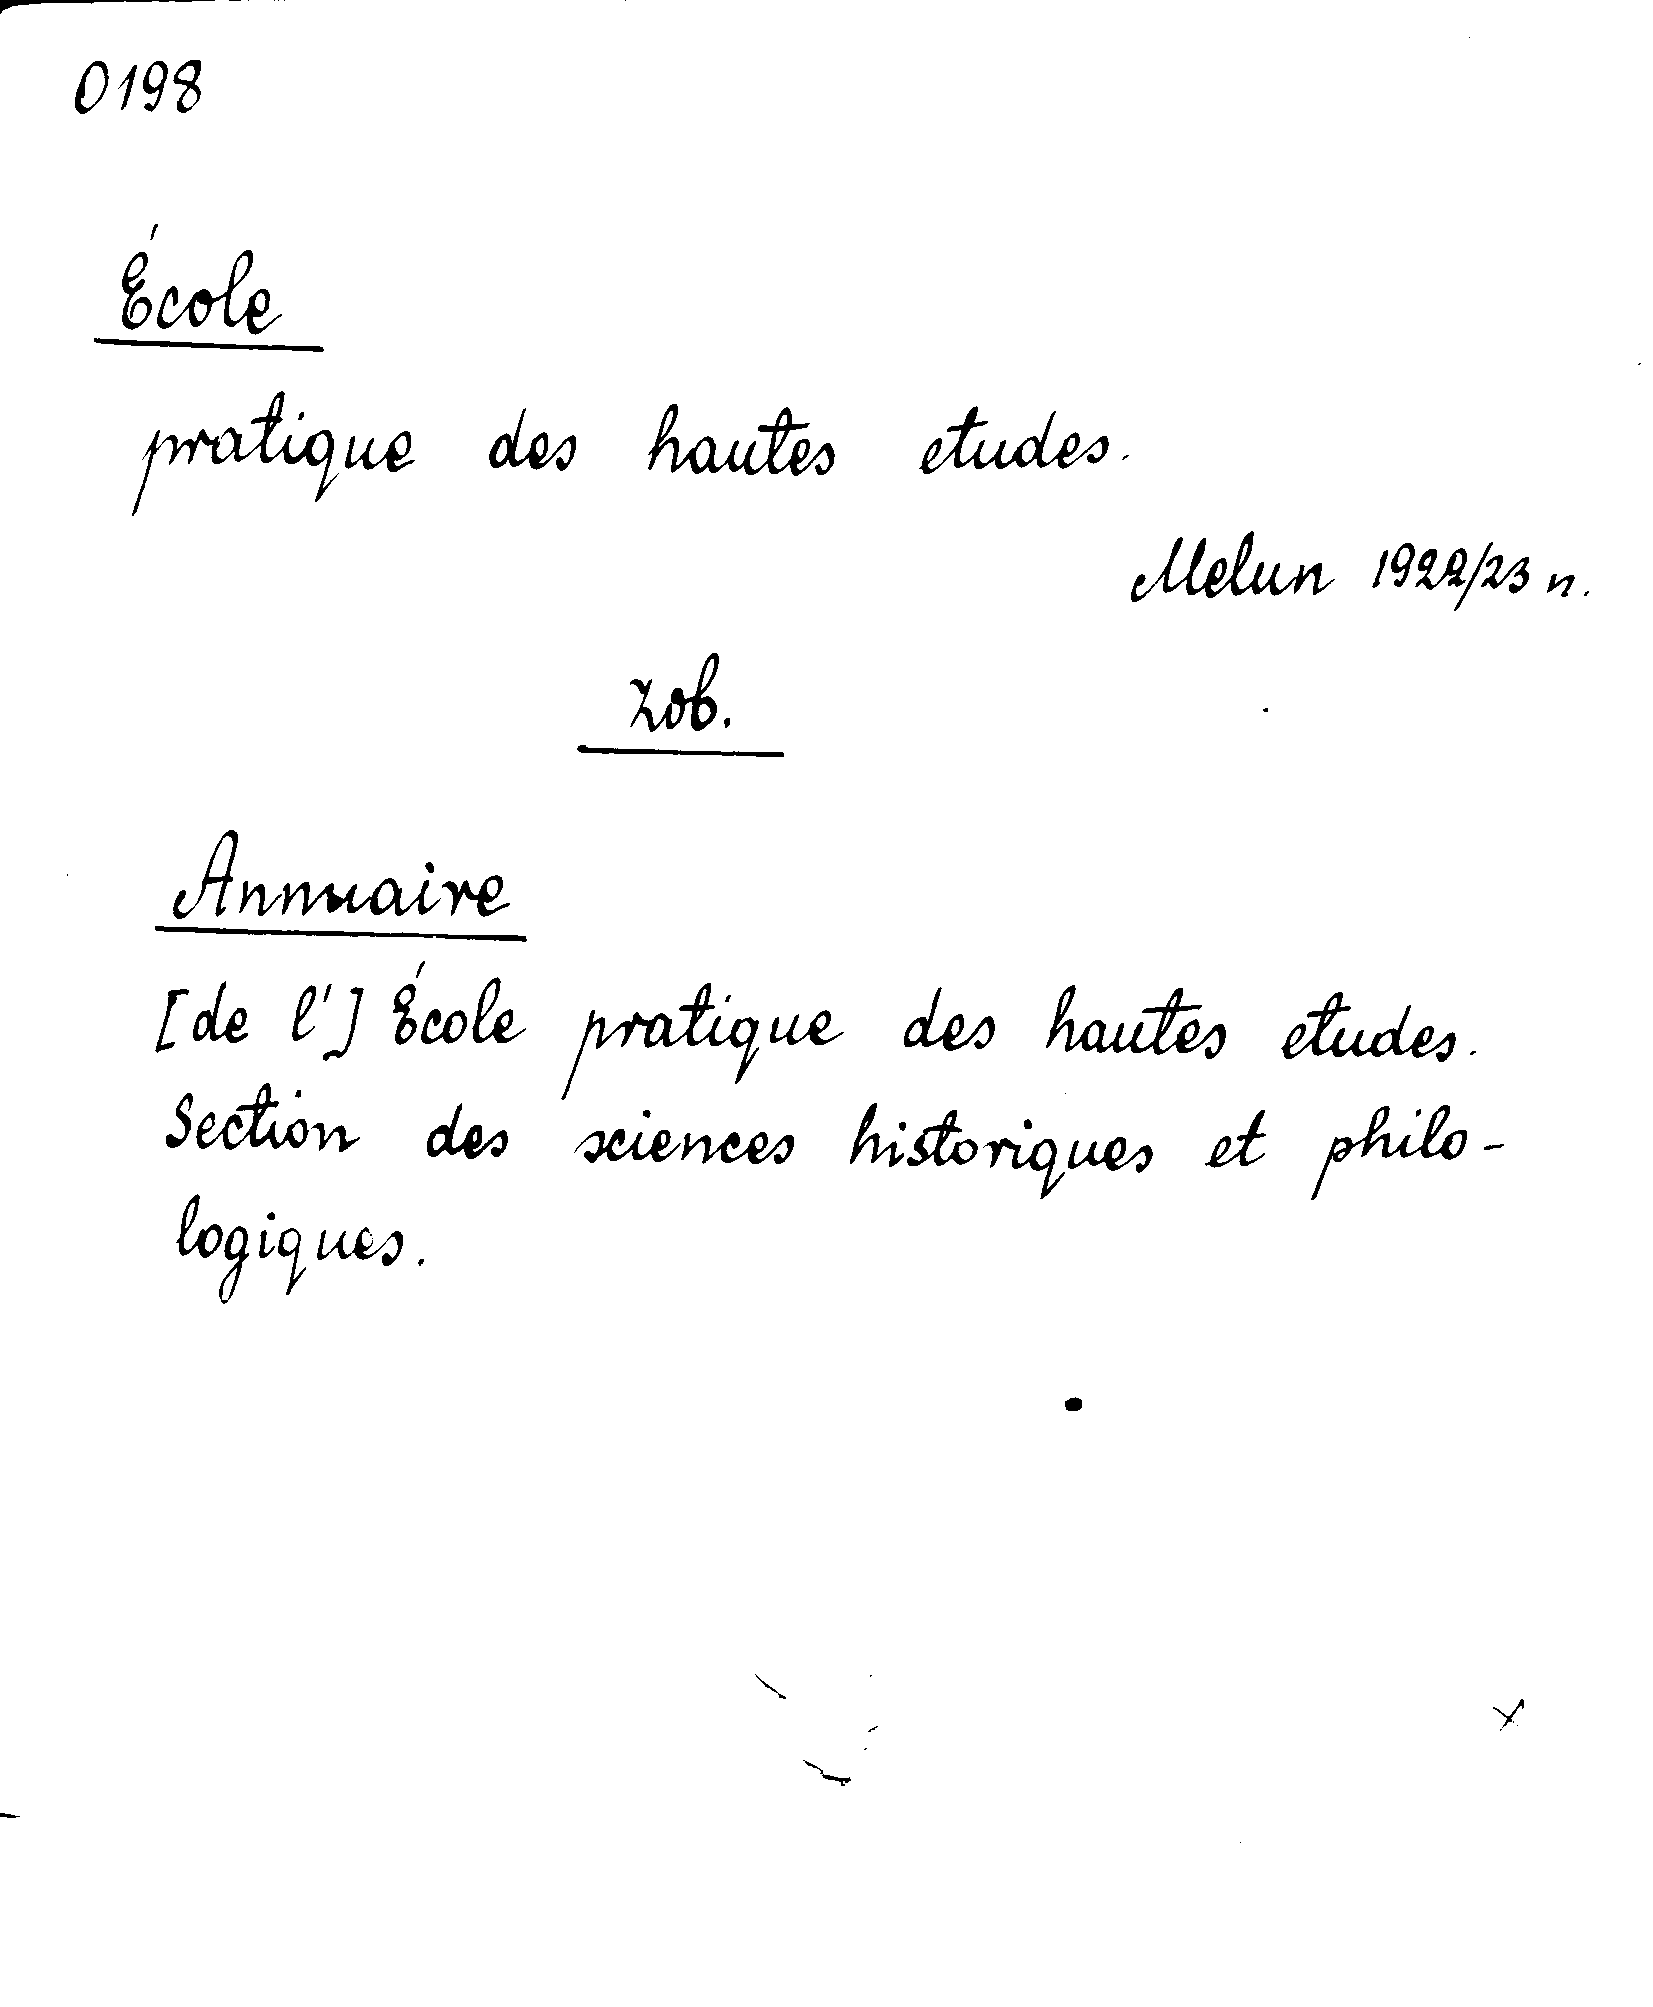 0198
École
pratique des hautes etudes.
Melun 1922/23 n.
zob.
Annuaire
[de l'] École pratique des hautes etudes.
Section des sciences historiques et philo-
logiques.